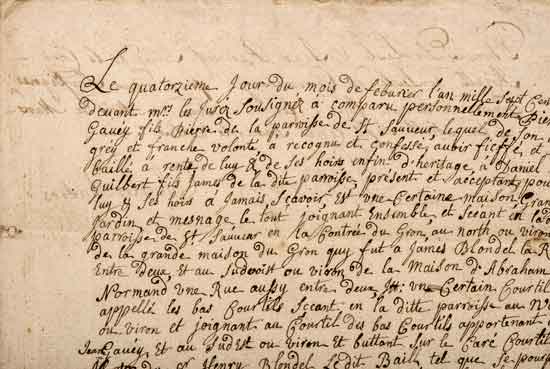 Le quatorzieme Jour du mois de feburier l'an mille Sept Cent
devant mrs les Jurez Sousignez à comparu personnellement
Gavey fils Pierre de la parroisse de St Sauveur lequel de Son
gré et franche volonté à recognu et confessé, aubir fieffé, et
baillé à rente de luy & de Ses hoirs infin d'heritage, à Daniel
Guilbert fils James de la dite parroisse, présent et acceptant pour
luy & Ses hoirs a Jamais, Sçavoir, Est une Certaine maison
Jardin et mesnage le tout Joignant Ensemble, et Sceant en la
parroisse de St Sauveur en la Contrée du Gron, au north ou viron
de la grande maison du Gron quy fut a James Blondel la
Entre Deux Et au Sudouist ou viron de la Maison d'Abraham
Normand une Rue aussy entre deux, Itt: une Certain Courtil
appellée les bas Courtils Sceant en la ditte parroisse au
ou viron et joignant au Courtil des bas Courtils appartenant
Jean Gavey, Et au Sudest ou viron et buttant Sur le Caré Courtil
Henry Blondel Ledit Bail tel que Se